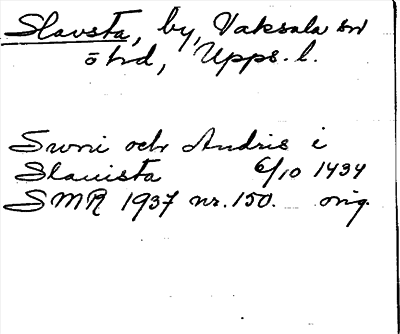 Slavsta, by, Vaksala sn
ö hd, Upps. l.
Swni och Andris i
Slauista 6/10 1434
SMR 1937 nr. 150. orig.